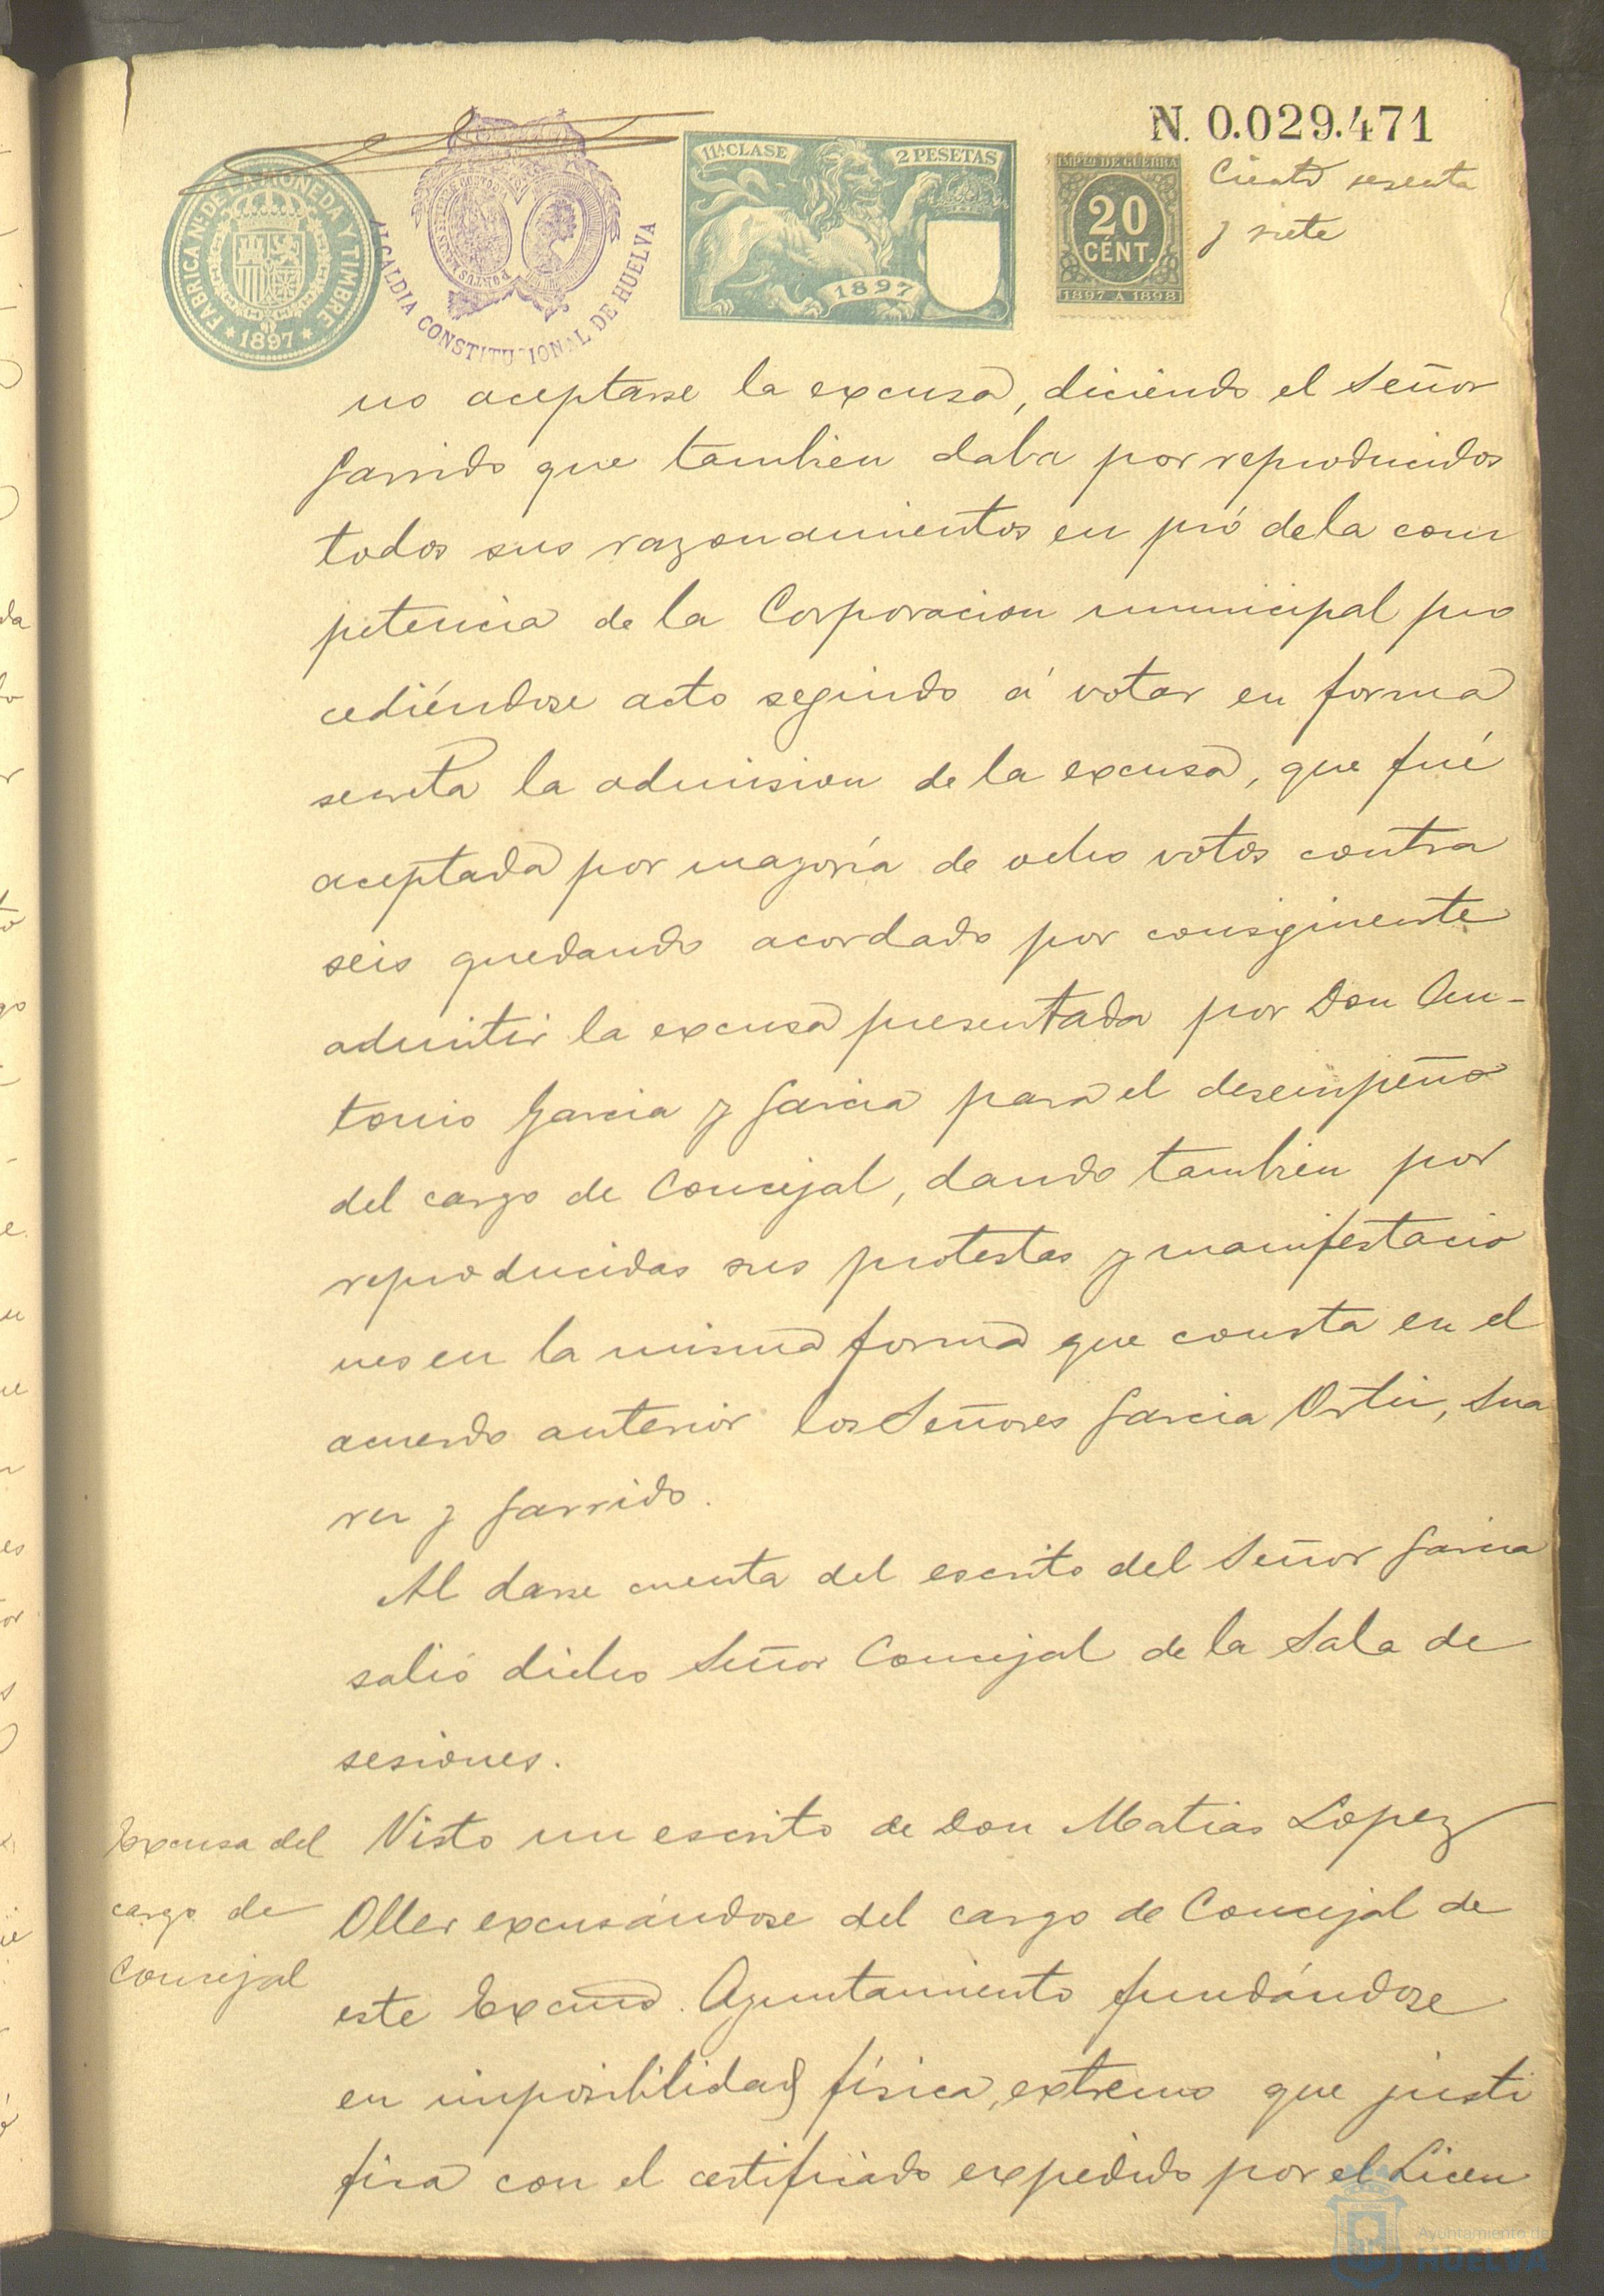 N. 0.029.471
Ciento sesenta
y siete
FABRICA Nl. DE LA MONEDA Y TIMBRE
* 1897 *
ALCALDIA CONSTITUCIONAL DE HUELVA
11ª CLASE
2 PESETAS
1897
IMPTO DE GUERRA
20
CÉNT.
1897 A 1898
no aceptarse la excusa, diciendo el Señor
Garrido que tambien daba por reproducidos
todos sus razonamientos en pró de la com
petencia de la Corporacion municipal pro
cediéndose acto seguido á votar en forma
secreta la admision de la excusa, que fué
aceptada por mayoría de ocho votos contra
seis quedando acordado por consiguiente
admitir la excusa presentada por Don An-
tonio Garcia y Garcia para el desempeño
del cargo de Concejal, dando tambien por
reproducidas sus protestas y manifestacio
nes en la misma forma que consta en el
acuerdo anterior los Señores Garcia Ortiz, Sua
rez y Garrido.
Al darse cuenta del escrito del Señor Garcia
salió dicho Señor Concejal de la Sala de
sesiones.
Excusa del
cargo de
Concejal
Visto un escrito de Don Matias Lopez
Oller excusándose del cargo de Concejal de
este Excmo. Ayuntamiento fundándose
en imposibilidad física, extremo que justi
fica con el certificado expedido por el Licen
Ayuntamiento de
HUELVA